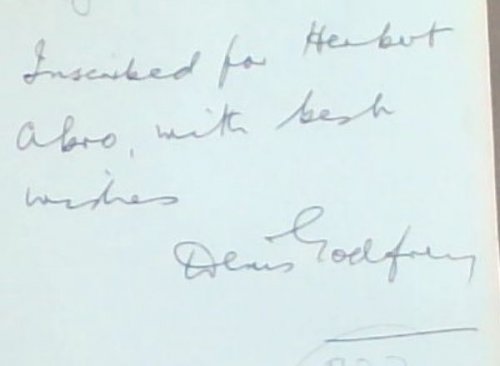 Inscribed for Herbert
Abro, with best
wishes
Denis Godfrey